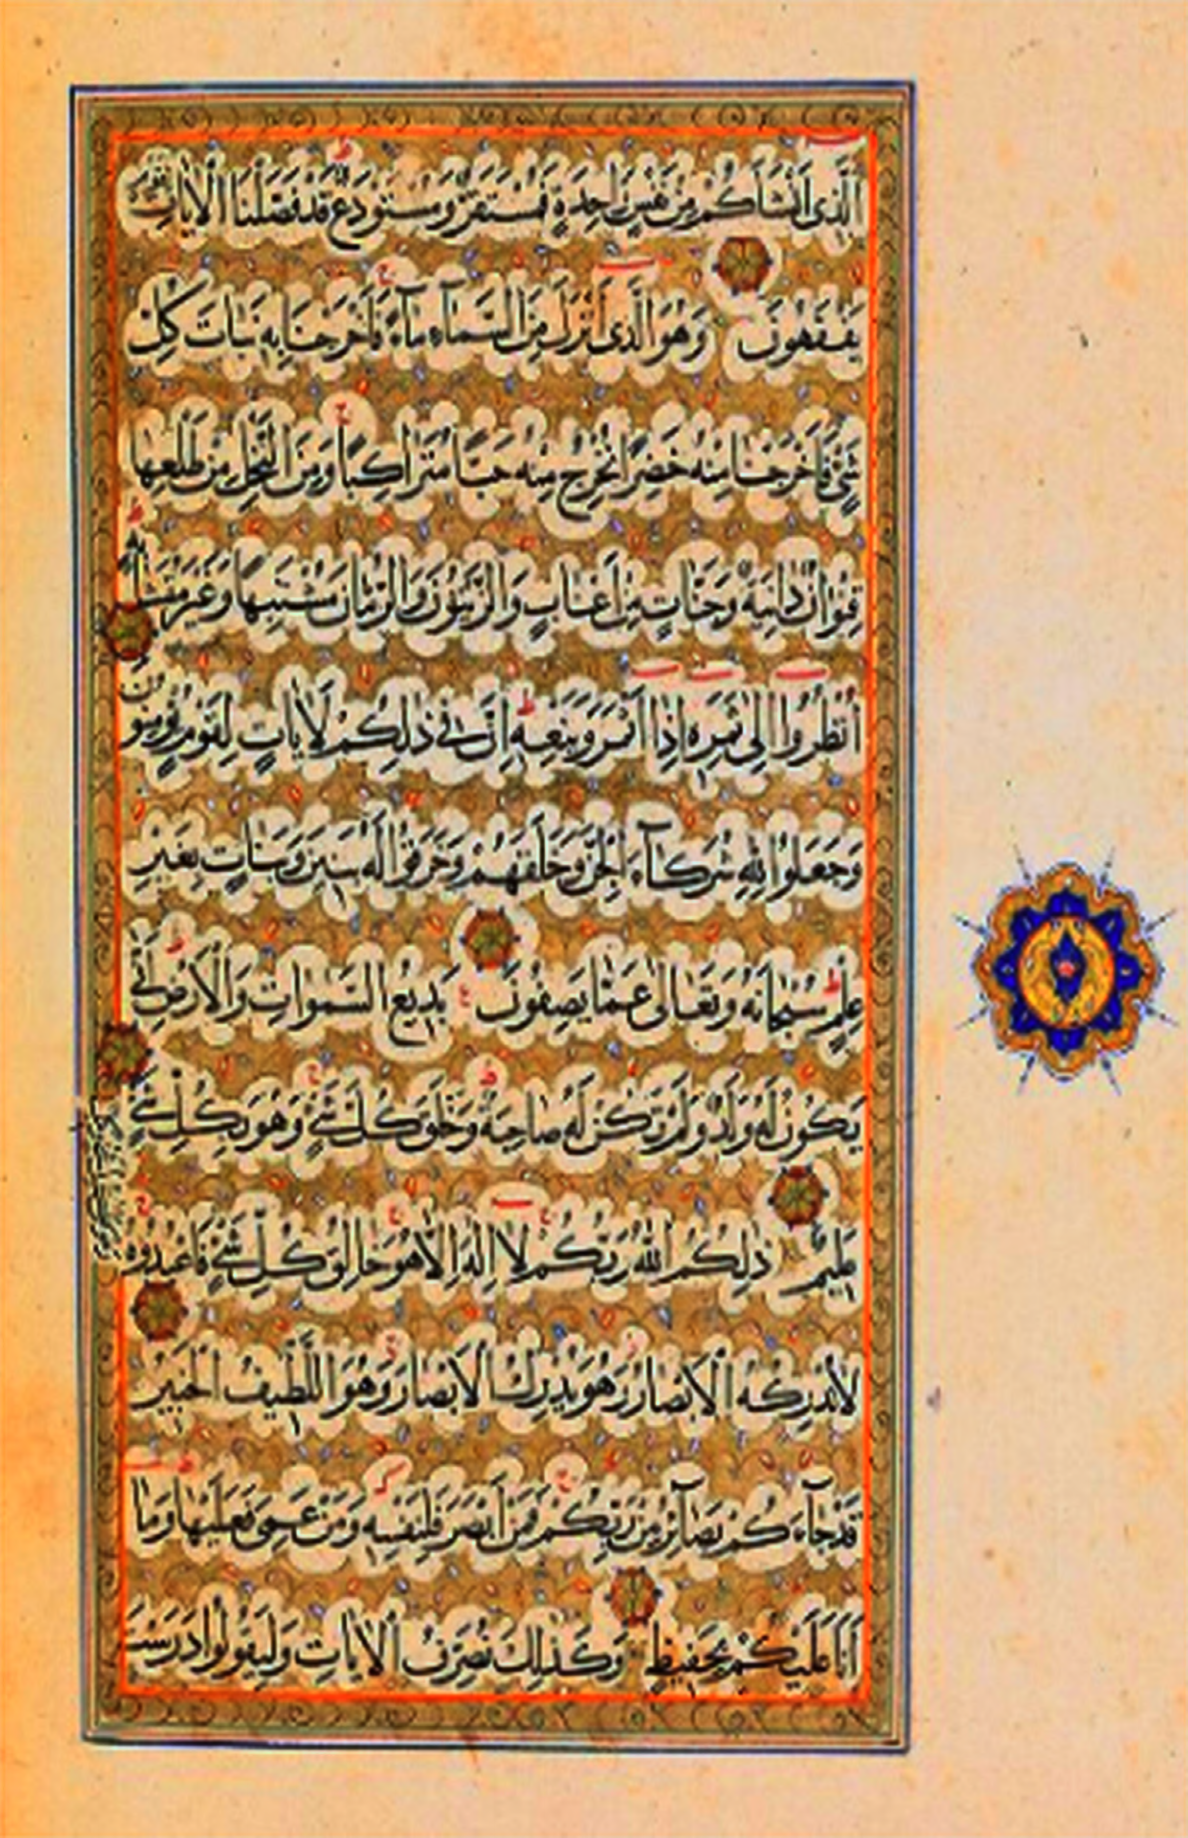 الَّذِى أَنْشَأَكُمْ مِنْ نَفْسٍ وَاحِدَةٍ فَمُسْتَقَرٌّ وَمُسْتَوْدَعٌ قَدْ فَصَّلْنَا الْاٰيَاتِ لِقَوْمٍ
يَفْقَهُونَ وَهُوَ الَّذِى أَنْزَلَ مِنَ السَّمَآءِ مَآءً فَأَخْرَجْنَا بِهِ نَبَاتَ كُلِّ
شَىْءٍ فَأَخْرَجْنَا مِنْهُ خَضِرًا نُخْرِجُ مِنْهُ حَبًّا مُتَرَاكِبًا وَمِنَ النَّخْلِ مِنْ طَلْعِهَا
قِنْوَانٌ دَانِيَةٌ وَجَنَّاتٍ مِنْ أَعْنَابٍ وَالزَّيْتُونَ وَالرُّمَّانَ مُشْتَبِهًا وَغَيْرَ مُتَشَابِهٍ
اُنْظُرُوا إِلٰى ثَمَرِهِ إِذَا أَثْمَرَ وَيَنْعِهِ إِنَّ فِى ذٰلِكُمْ لَاٰيَاتٍ لِقَوْمٍ يُؤْمِنُونَ
وَجَعَلُوا لِلّٰهِ شُرَكَآءَ الْجِنَّ وَخَلَقَهُمْ وَخَرَقُوا لَهُ بَنِينَ وَبَنَاتٍ بِغَيْرِ
عِلْمٍ سُبْحَانَهُ وَتَعَالٰى عَمَّا يَصِفُونَ بَدِيعُ السَّمٰوَاتِ وَالْأَرْضِ أَنّٰى
يَكُونُ لَهُ وَلَدٌ وَلَمْ تَكُنْ لَهُ صَاحِبَةٌ وَخَلَقَ كُلَّ شَىْءٍ وَهُوَ بِكُلِّ شَىْءٍ
عَلِيمٌ ذٰلِكُمُ اللّٰهُ رَبُّكُمْ لَا إِلٰهَ إِلَّا هُوَ خَالِقُ كُلِّ شَىْءٍ فَاعْبُدُوهُ
لَا تُدْرِكُهُ الْأَبْصَارُ وَهُوَ يُدْرِكُ الْأَبْصَارَ وَهُوَ اللَّطِيفُ الْخَبِيرُ
قَدْ جَآءَكُمْ بَصَآئِرُ مِنْ رَبِّكُمْ فَمَنْ أَبْصَرَ فَلِنَفْسِهِ وَمَنْ عَمِىَ فَعَلَيْهَا وَمَا
أَنَا عَلَيْكُمْ بِحَفِيظٍ وَكَذٰلِكَ نُصَرِّفُ الْاٰيَاتِ وَلِيَقُولُوا دَرَسْتَ